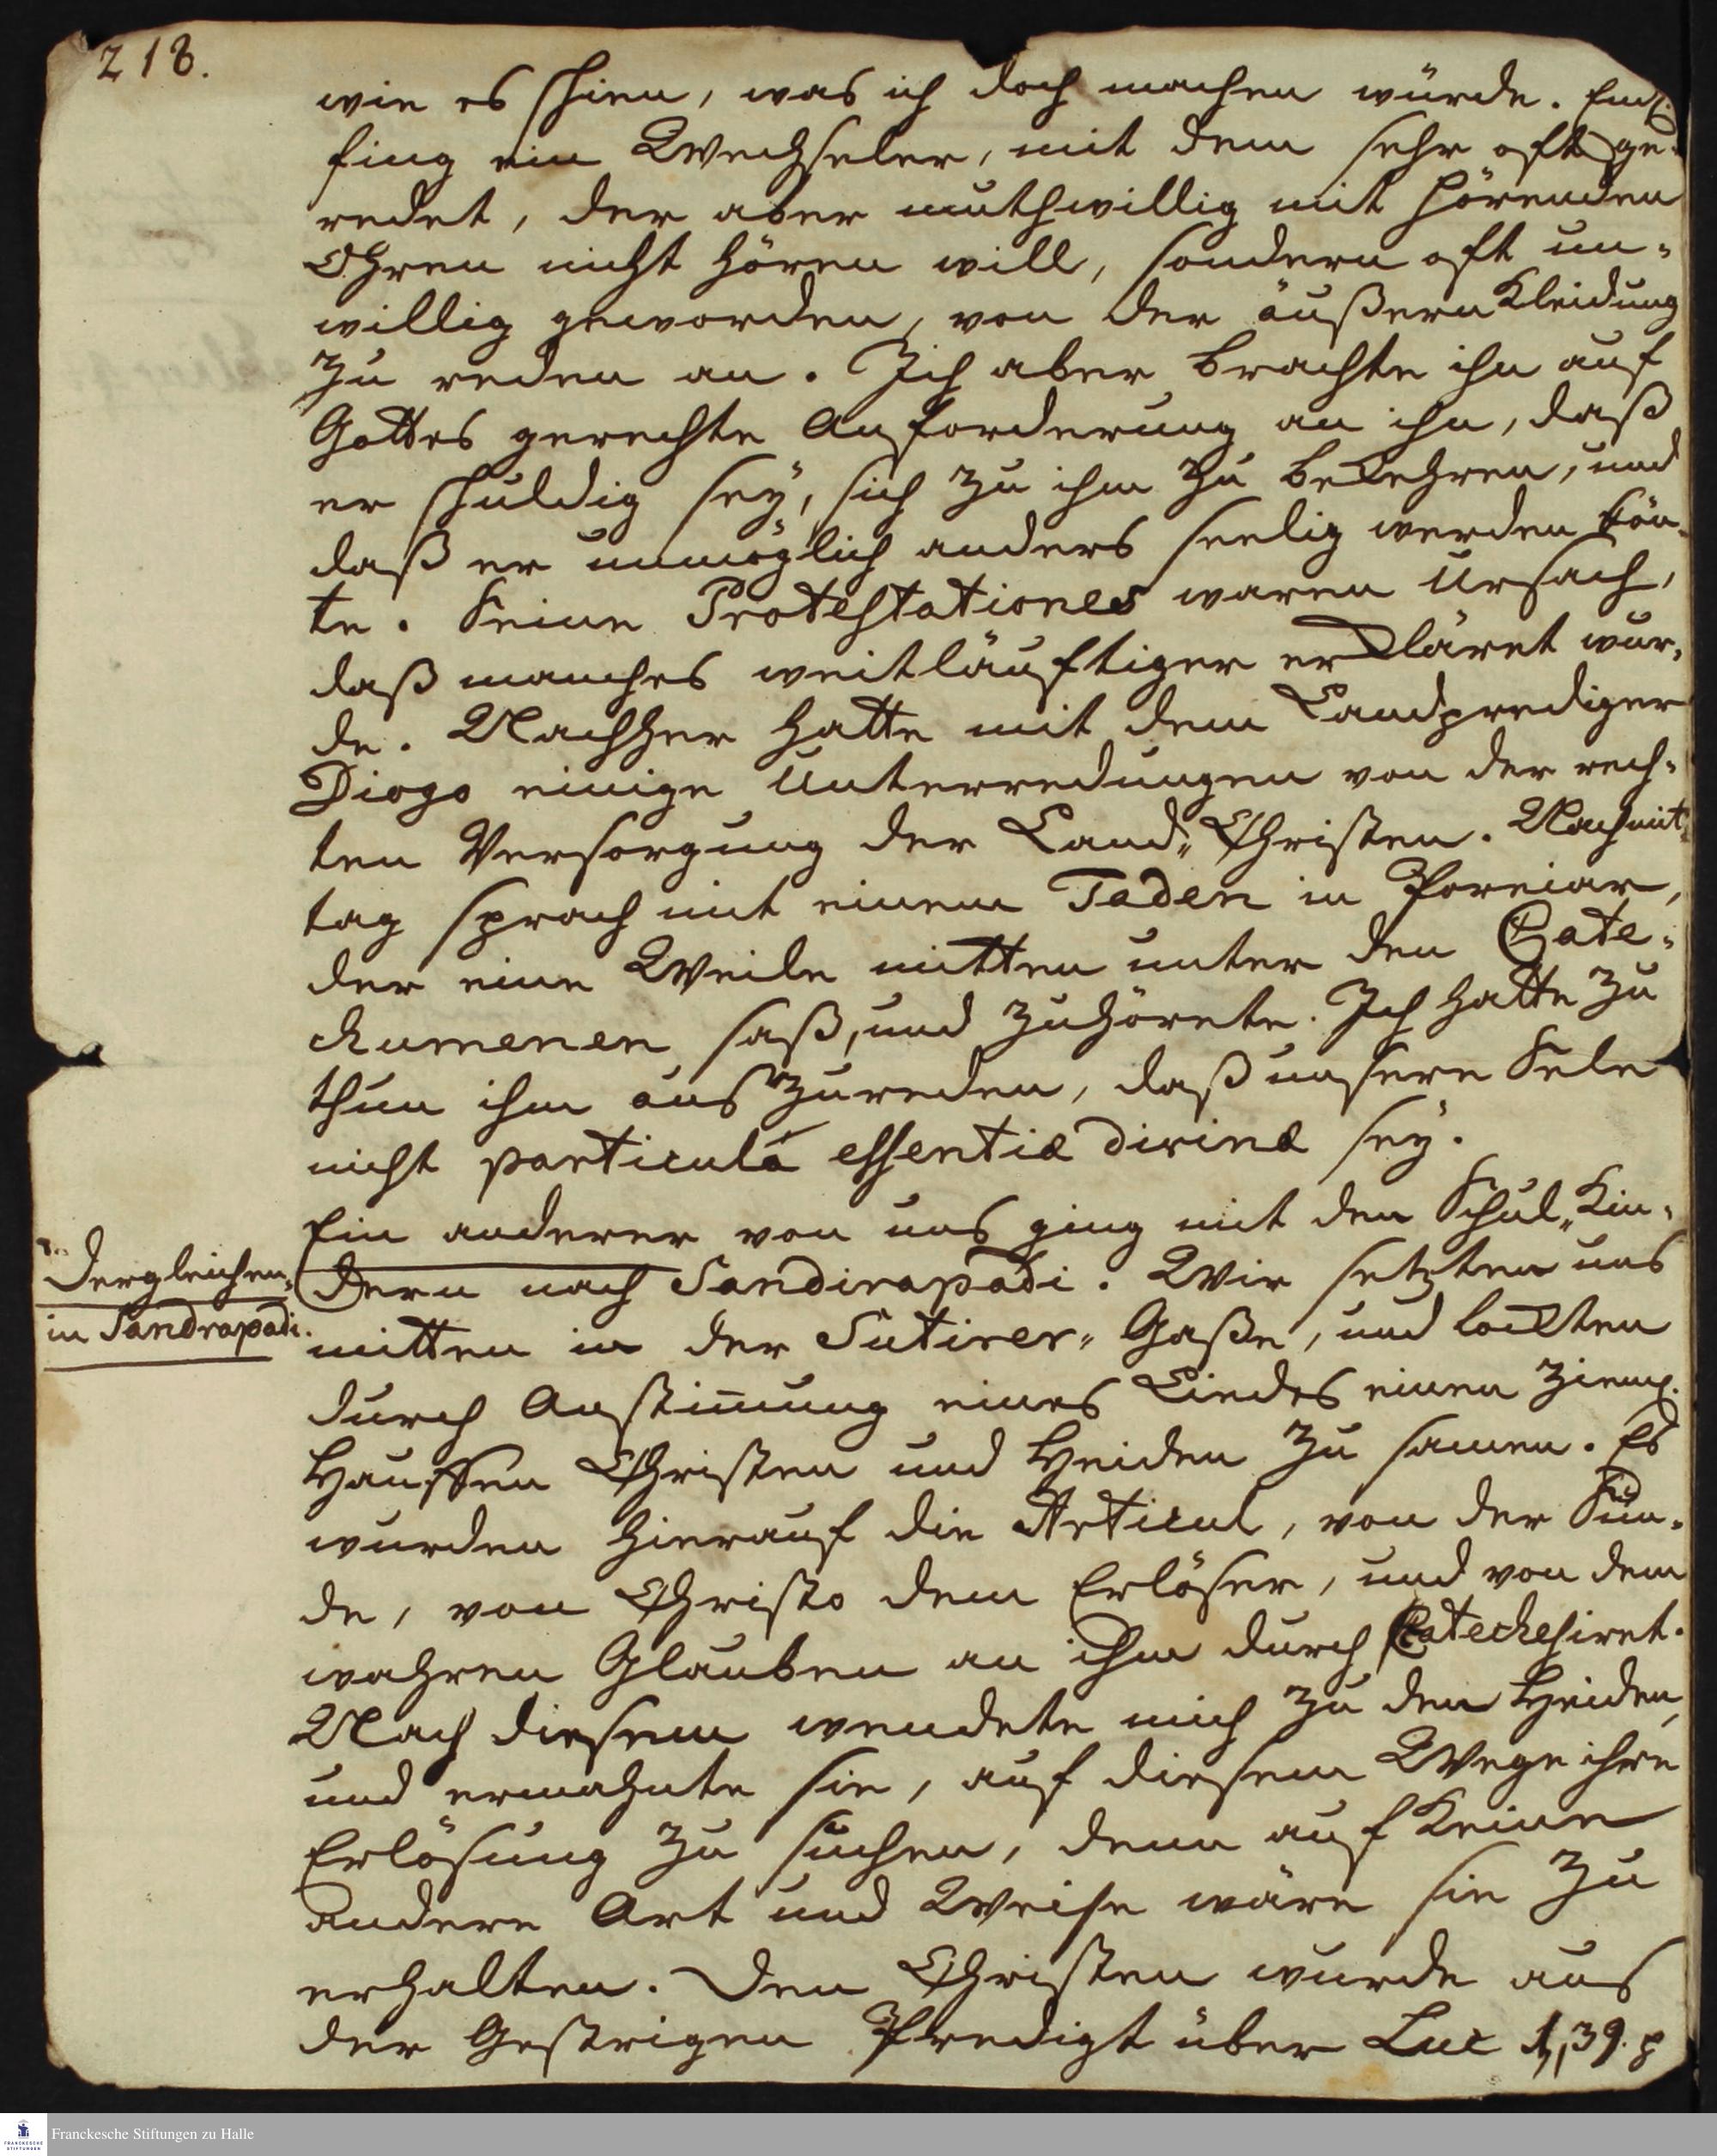 218.
wie es schien, was ich doch machen würde. Endl.
fing ein Wechseler, mit dem sehr oft ge-
redet, der aber muthwillig mit hörenden
Ohren nicht hören will, sondern oft un-
willig geworden, von der äußern Kleidung
zu reden an. Ich aber brachte ihn auf
Gottes gerechte Anforderung an ihn, daß
er schuldig sey, sich zu ihm zu bekehren, und
daß er unmöglich anders seelig werden kön-
te. Seine Protestationes waren Ursach,
daß manches weitläuftiger erkläret wur-
de. Nachher hatte mit dem Landprediger
Diogo einige Unterredungen von der rech-
ten Versorgung der Land-Christen. Nachmit-
tag sprach mit einem Taden in Poreiar,
der eine Weile mitten unter den Cate-
chumenen saß, und zuhörete. Ich hatte zu
thun ihm auszureden, daß unsere Sele
nicht particula essentiæ divinæ sey.
Ein anderer von uns ging mit den Schul-Kin-
dern nach Sandirapadi. Wir setzten uns
Dergleichen
in Sandrapadi.
mitten in der Sutirer-Gaße, und lockten
durch Anstim̄ung eines Liedes einen zieml.
Hauffen Christen und Heiden zu samen. Es
wurden hierauf die Articul, von der Sün-
de, von Christo dem Erlöser, und von dem
wahren Glauben an ihm durch Catechesiret.
Nach diesem wendete mich zu den Heiden,
und ermahnte sie, auf diesem Wege ihre
Erlösung zu suchen, denn auf keine
andere Art und Weise wäre sie zu
erhalten. Den Christen wurde aus
der Gestrigen Predigt über Luc 1,39. p
Franckesche Stiftungen zu Halle